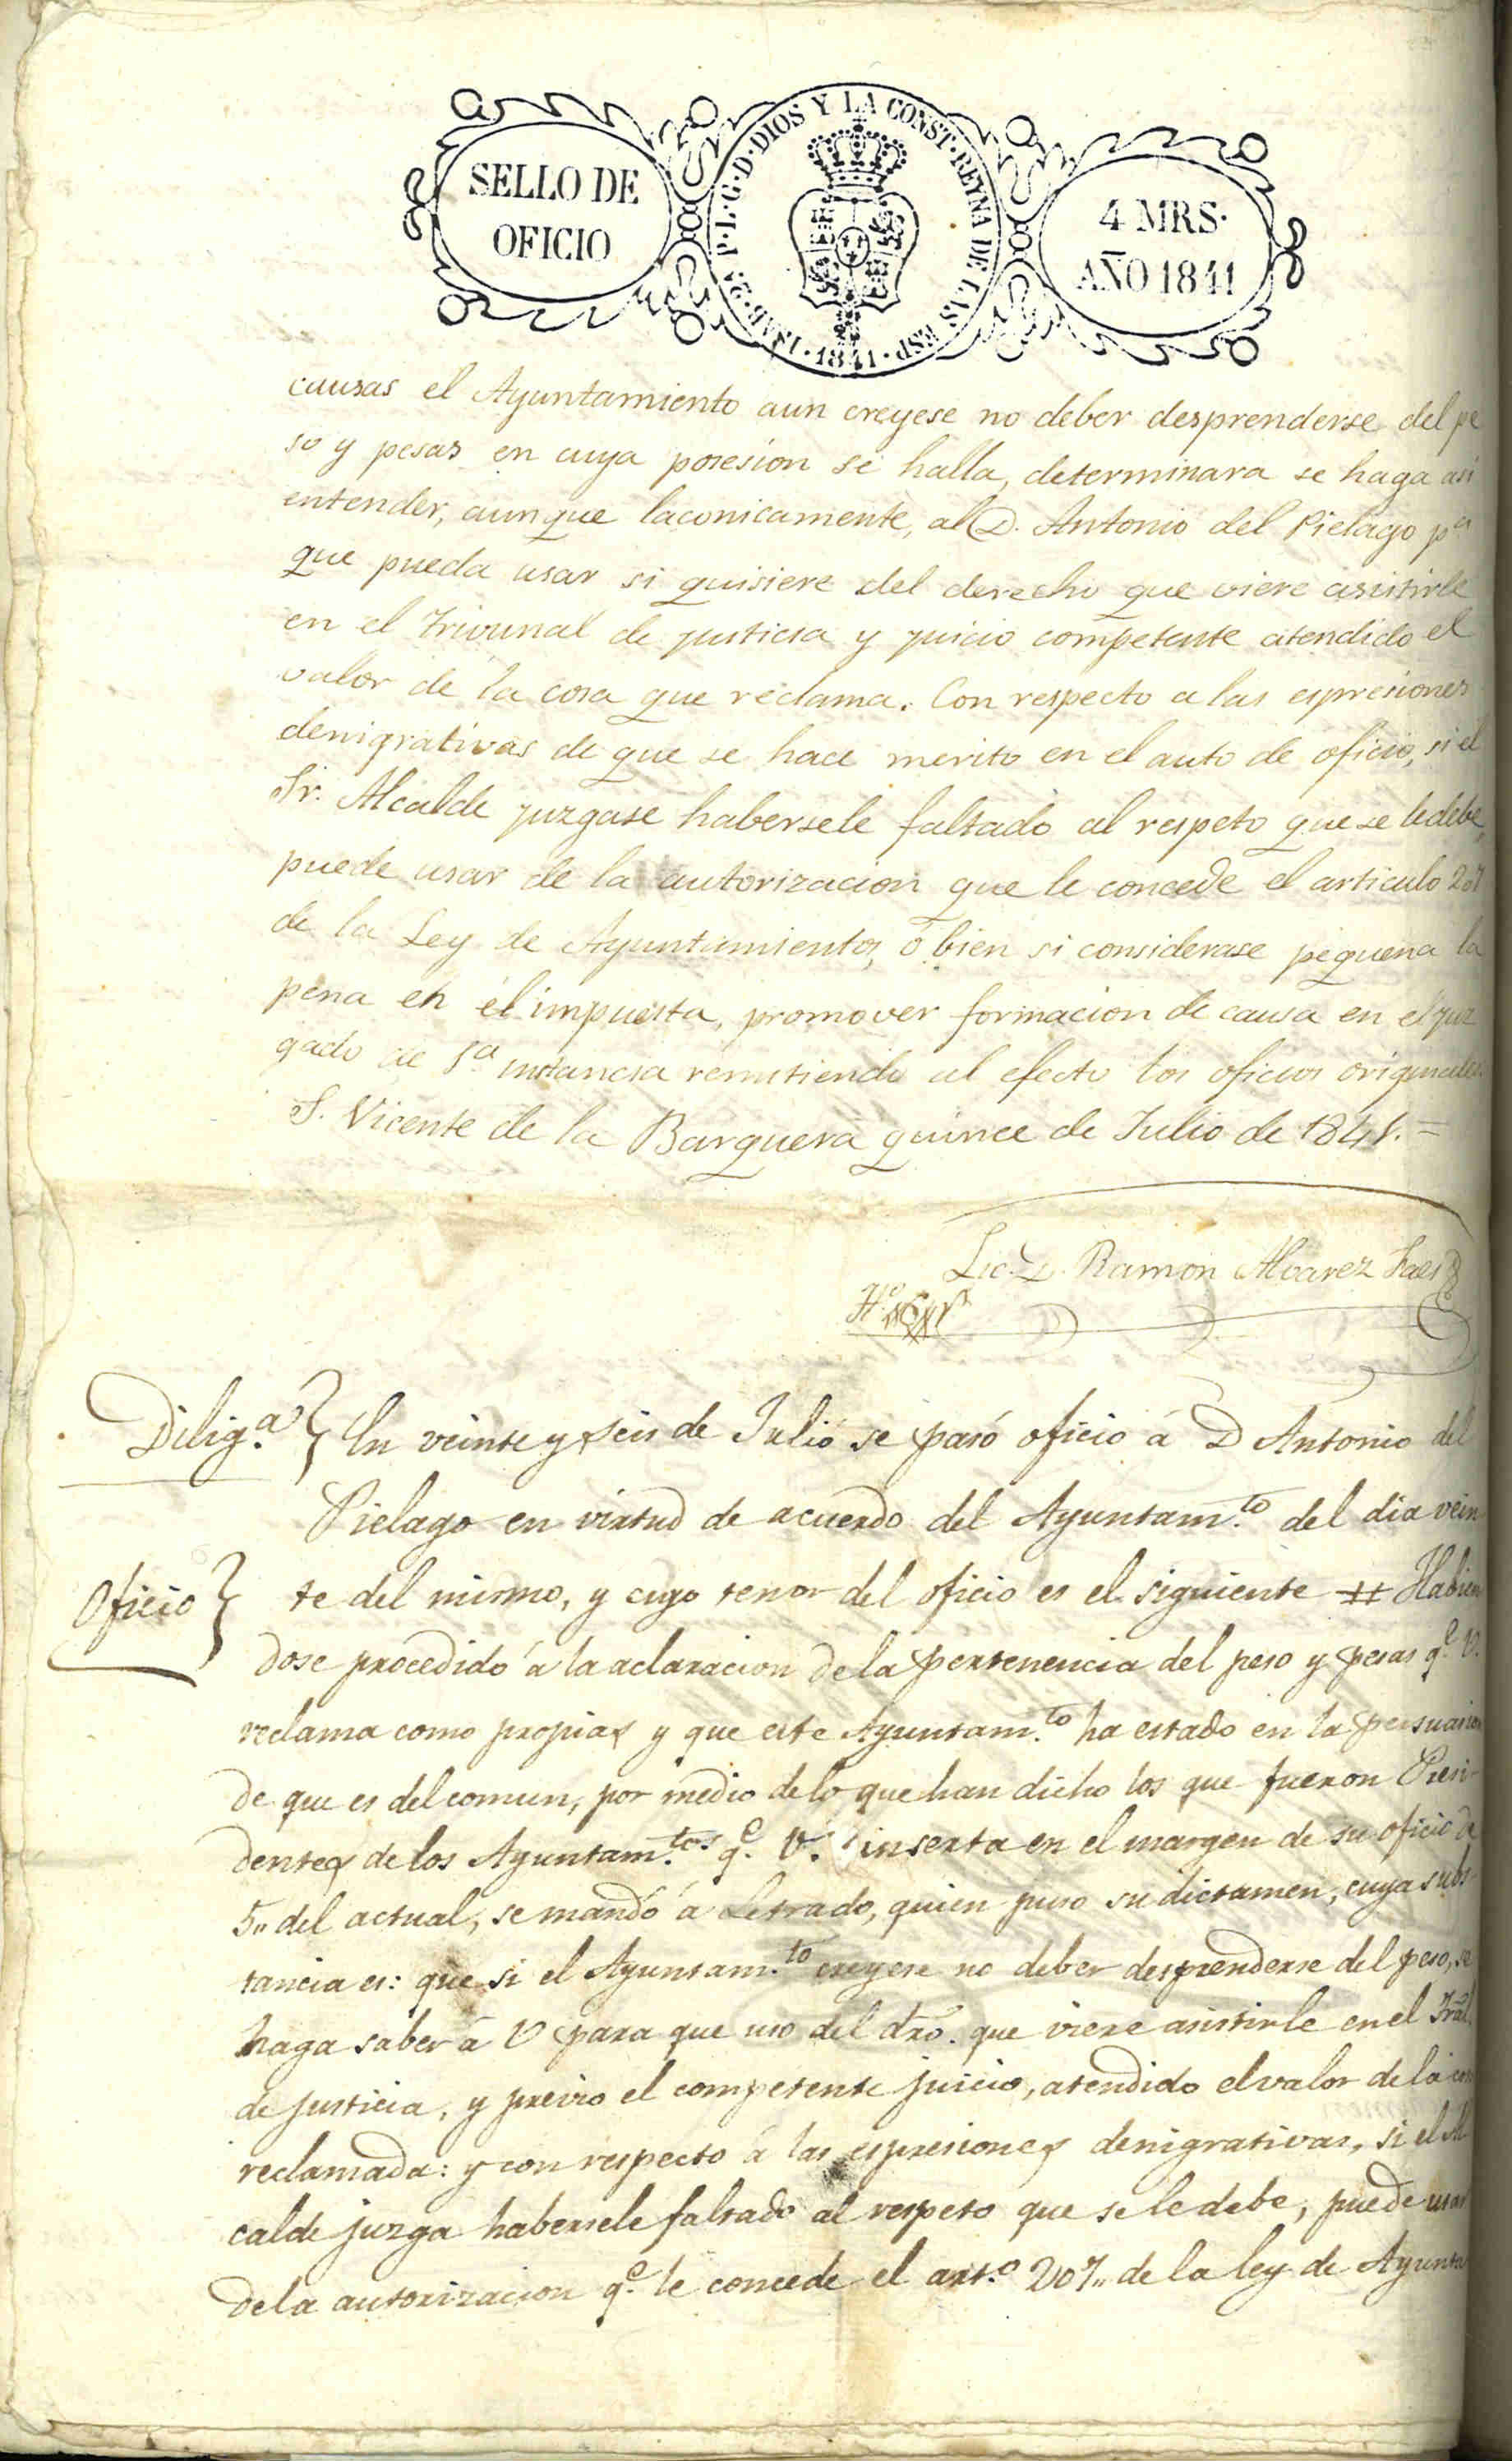 SELLO DE
OFICIO
ISAB. 2ª P. L. G. D. DIOS Y LA CONST. REYNA DE LAS ESP. 1841.
4 MRS.
AÑO 1841
causas el Ayuntamiento aun creyese no deber desprenderse del pe
so y pesas en cuya posesion se halla, determinara se haga asi
entender, aunque laconicamente, al D. Antonio del Pielago pª
que pueda usar si quisiere del derecho que viere asistirle
en el Trivunal de justicia y juicio competente atendido el
valor de la cosa que reclama. Con respecto a las espresiones
denigrativas de que se hace merito en el auto de oficio, si el
Sr. Alcalde juzgase habersele faltado al respeto que se le debe,
puede usar de la autorizacion que le concede el articulo 207
de la Ley de Ayuntamientos, ó bien si considerase pequena la
pena en él impuesta, promover formacion de causa en el juz
gado de 1ª instancia remitiendo al efecto los oficios originales.
S. Vicente de la Barquera quince de Julio de 1841. =
Lic. D. Ramon Alvarez
Dilig.ª } En veinte y seis de Julio se pasó oficio á D Antonio del
Pielago en virtud de acuerdo del Ayuntam.to del dia vein
Oficio } te del mismo, y cuyo tenor del oficio es el siguiente # Habien
dose procedido á la aclaracion de la pertenencia del peso y pesas q.e V.
reclama como propias y que este Ayuntam.to ha estado en la persuasion
de que es del comun, por medio de lo que han dicho los que fueron Presi-
dentes de los Ayuntam.tos q.e V. inserta en el margen de su oficio de
5,, del actual, se mandó á Letrado, quien puso su dictamen, cuya subs-
tancia es: que si el Ayuntam.to creyese no deber desprenderse del peso, se
haga saber á V para que uso del dro. que viere asistirle en el Tral.
de justicia, y previo el competente juicio, atendido el valor de la cosa
reclamada: y con respecto á las espresiones denigrativas, si el Al
calde juzga habersele faltado al respeto que se le debe, puede usar
de la autorizacion q.e le concede el art.o 207,, de la ley de Ayunta